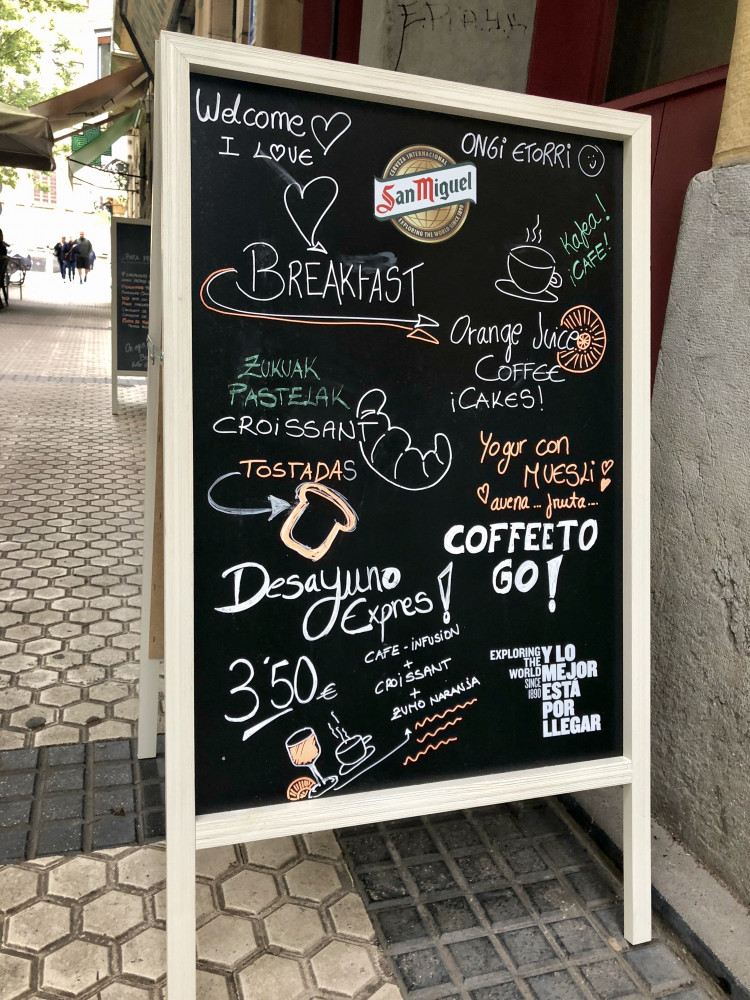 Welcome
I LOVE
ONGI ETORRI
CERVEZA INTERNACIONAL
San Miguel
EXPLORING THE WORLD SINCE 1890
Kafea!
¡CAFE!
BREAKFAST
Orange Juice
COFFEE
¡CAKES!
ZUKUAK
PASTELAK
CROISSANT
TOSTADAS
Yogur con
MUESLi
avena... fruta...
COFFEE TO
GO!
Desayuno
Expres!
3'50€
CAFE-INFUSION
+
CROISSANT
+
ZUMO NARANJA
EXPLORING
THE
WORLD
SINCE
1890
Y LO
MEJOR
ESTÁ
POR
LLEGAR